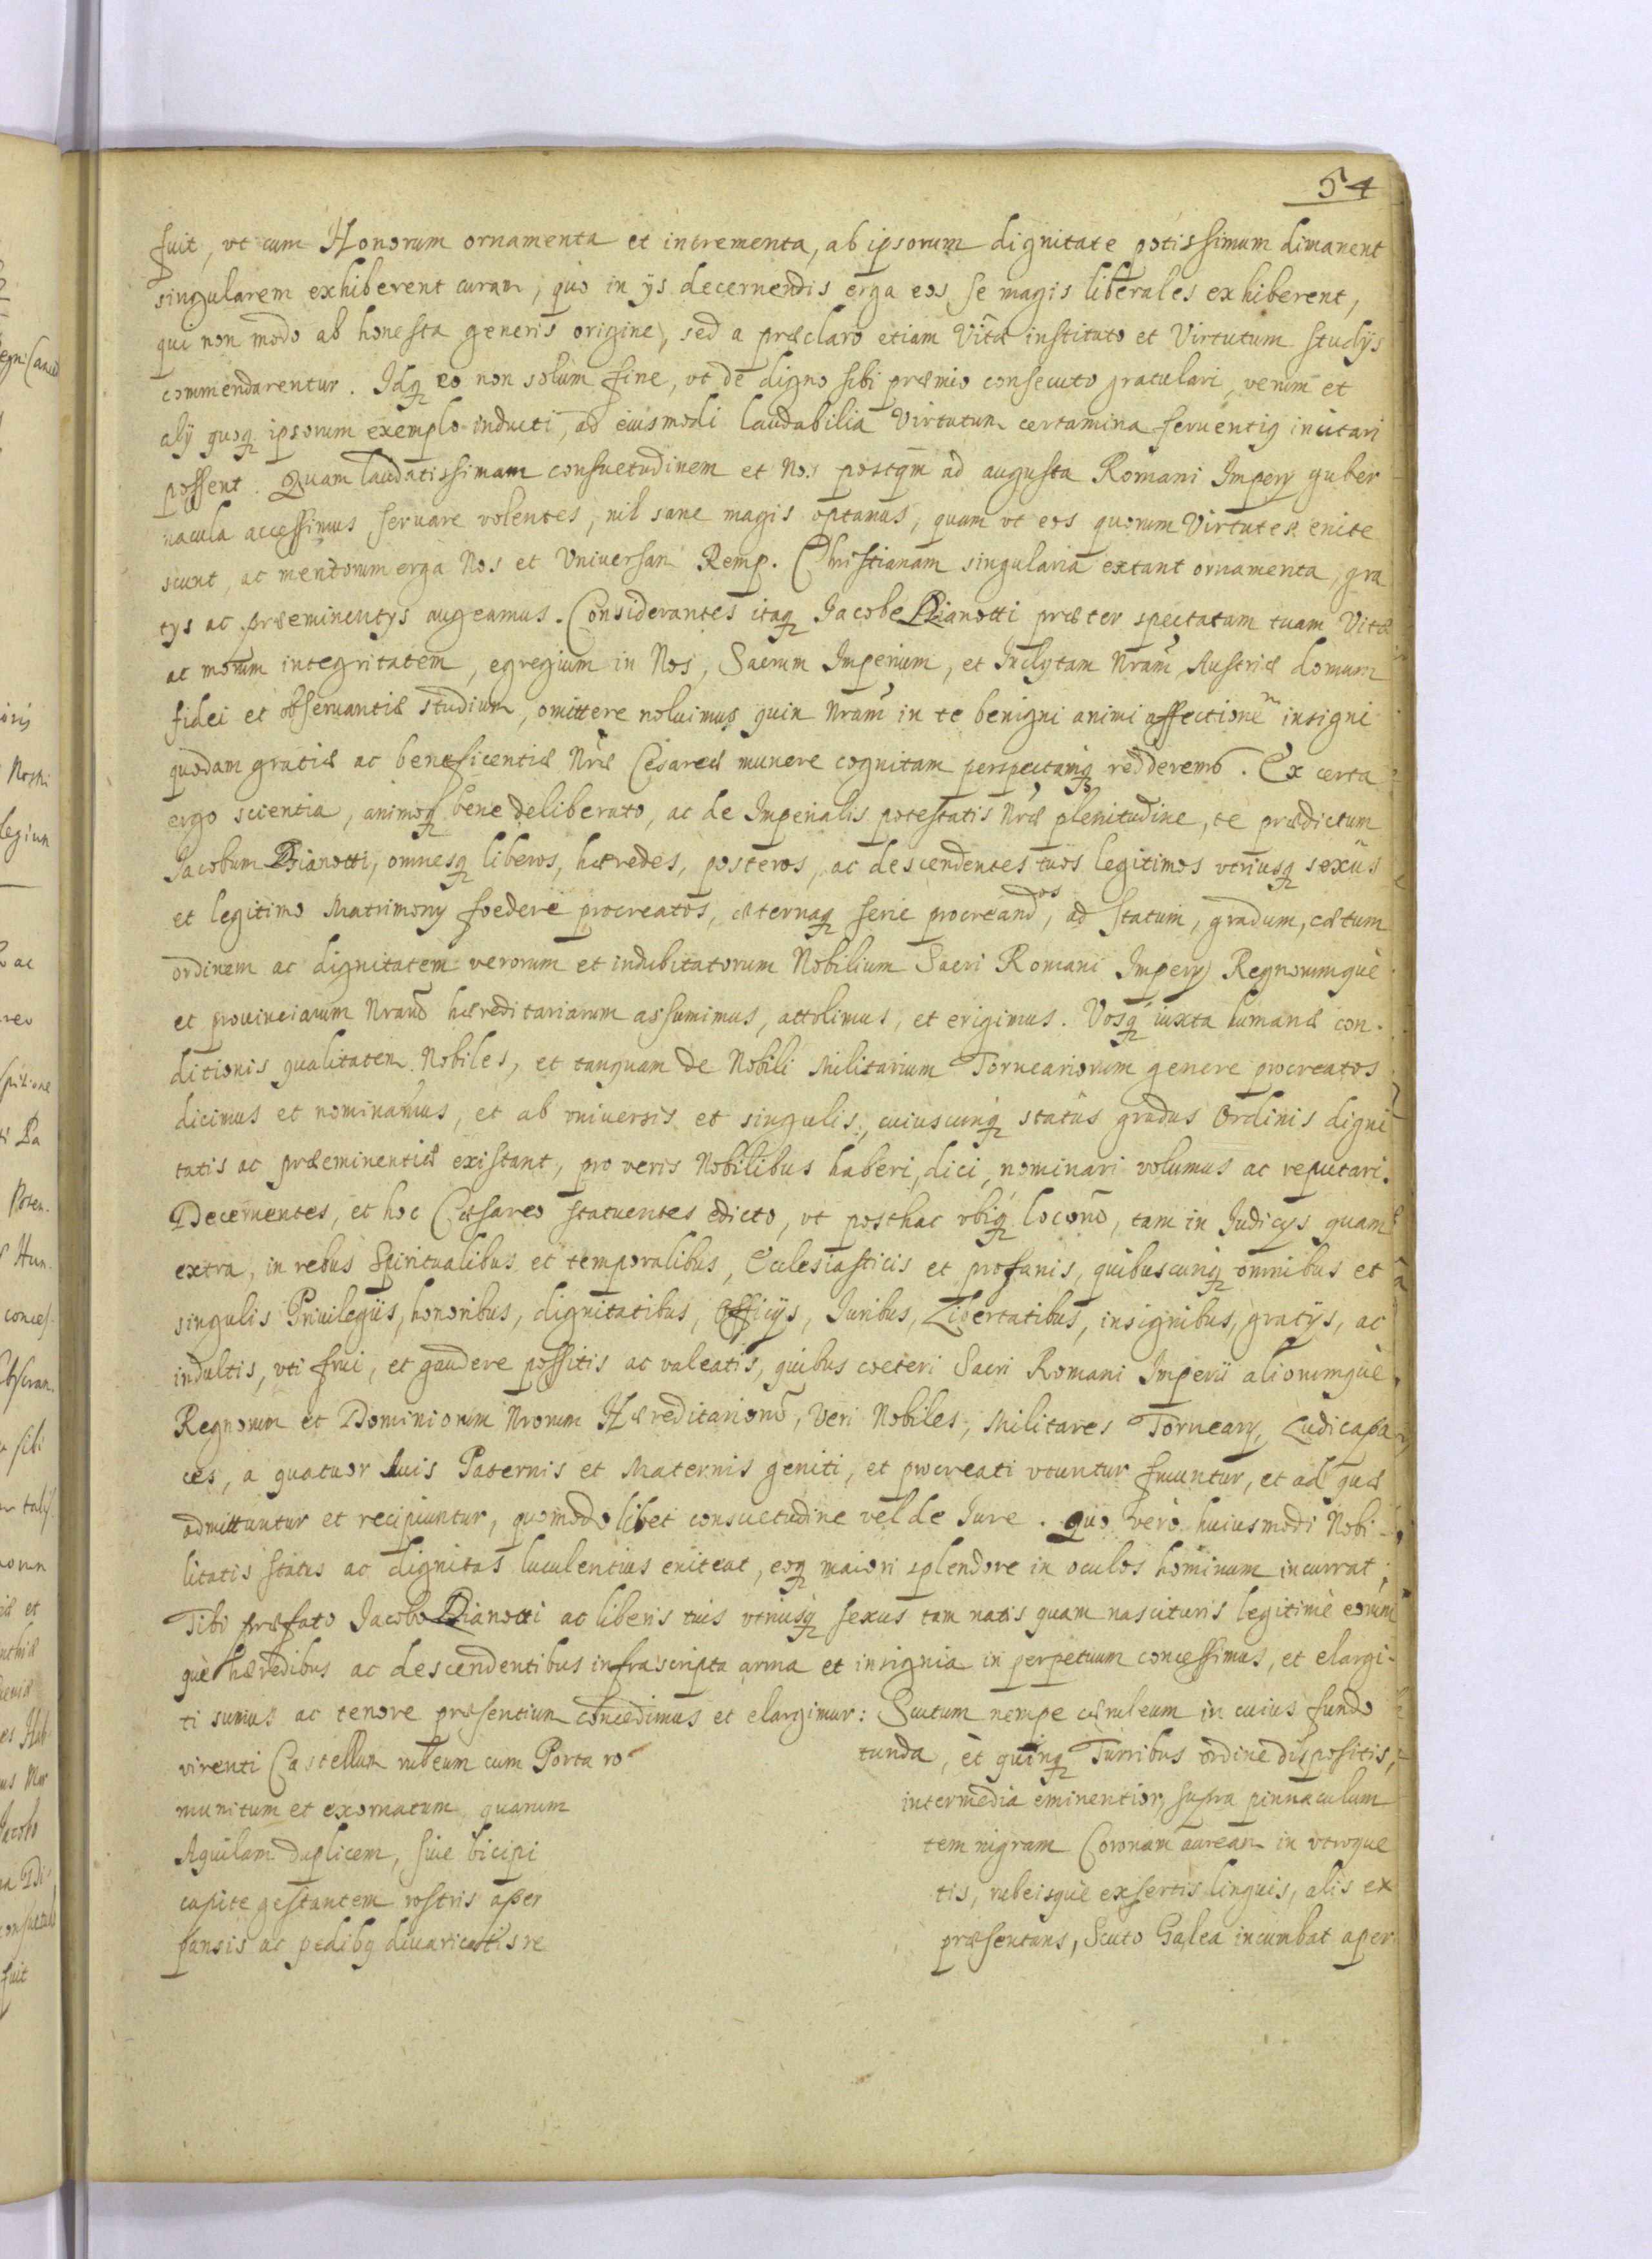 54
fuit, vt cum Honorum ornamenta et incrementa, ab ipsorum dignitate potissimum dimanent
singularem exhiberent curam, quo in ijs decernendis erga eos se magis liberales exhiberent,
qui non modo ab honesta generis origine, sed a præclaro etiam Vitæ instituto et Virtutum studijs
commendarentur. Idq eo non solum fine, vt de digno sibi præmio consecuto gratulari, verum et
alij quoq ipsorum exemplo inducti, ad eiusmodi laudabilia Virtutum certamina feruentiq incitari
possent. Quam laudatissimam consuetudinem et Nos postqm ad augusta Romani Impery guber
nacula accessimus seruare volentes, nil sane magis optamus, quam vt eos quorum Virtutes enite
scunt, ac meritorum erga Nos et Vniuersam Remp. Christianam singularia extant ornamenta, gra
tijs ac præeminentijs augeamus. Considerantes itaq Jacobe Dianotti præter spectatam tuam Vitæ
ac morum integritatem, egregium in Nos, Sacrum Imperium, et Inclytam Nram Austriæ domum
fidei et obseruantiæ studium, omittere noluimus quin Nram in te benigni animi affectionem insigni
quodam gratiæ ac beneficentiæ Nræ Cesareæ munere cognitam perspectamq redderems. Ex certa
ergo scientia, animoq bene deliberato, ac de Imperialis potestatis Nræ plenitudine, te prædictum
Jacobum Dianotti, omnesq liberos, hæredes, posteros, ac descendentes tuos legitimos vtriusq sexûs
et legitimo Matrimony foedere procreatos, æternaq serie procreandos, ad statum, gradum, cætum
ordinem ac dignitatem verorum et indubitatorum Nobilium Sacri Romani Impery Regnorumquè
et prouinciarum Nrarũ hæreditariarum assumimus, attolimus, et erigimus. Vosq iuxta humanæ con.
ditionis qualitatem Nobiles, et tanquam de Nobili Militarium Torneariorum genere procreatos
dicimus et nominamus, et ab vniuersis et singulis, cuiuscunq statûs gradus Ordinis digni
tatis ac præeminentiæ existant, pro veris Nobilibus haberi, dici, nominari volumus ac reputari.
Decernentes, et hoc Cæsareo statuentes edicto, vt posthac vbiq locorũ, tam in Judicijs quam
extra, in rebus Spiritualibus et temporalibus, Ecclesiasticis et profanis, quibuscunq omnibus et
singulis Priuilegiis, honoribus, dignitatibus, Officijs, Juribus, Libertatibus, insignibus, gratijs, ac
indultis, vti frui, et gaudere possitis ac valeatis, quibus coeteri Sacri Romani Imperii aliorumquè
Regnorum et Dominiorum Nrorum Hæreditariorũ, Veri Nobiles, Militares Torneary, Ludicapa
ces, a quatuor Auis Paternis et Maternis geniti, et procreati vtuntur fruuntur, et ad quæ
admittuntur et recipiuntur, quomodolibet consuetudine vel de Jure. Quo verò huiusmodi Nobi-
litatis status ac dignitas luculentius eniteat, eoq maiori splendore in oculos hominum incurrat,
Tibi præfato Jacobo Dianotti ac liberis tuis vtriusq sexus tam natis quam nascituris legitimè eorum
què hæredibus ac descendentibus infrascripta arma et insignia in perpetuum concessimus, et elargi-
ti sumus ac tenore præsentium concedimus et elargimur: Scutum nempe cæruleum in cuius fundo
virenti Castellum rubeum cum Porta ro tunda, et quinq Turribus ordine dispositis,
munitum et exornatum quarum intermedia eminentior, supra pinnaculum
Aquilam duplicem, siue bicipi tem nigram Coronam auream in vtroque
capite gestantem rostris aper tis, rubeisquè exsertis linguis, alis ex
pansis ac pedibq diuaricatis re præsentans, Scuto Galea incumbat aper